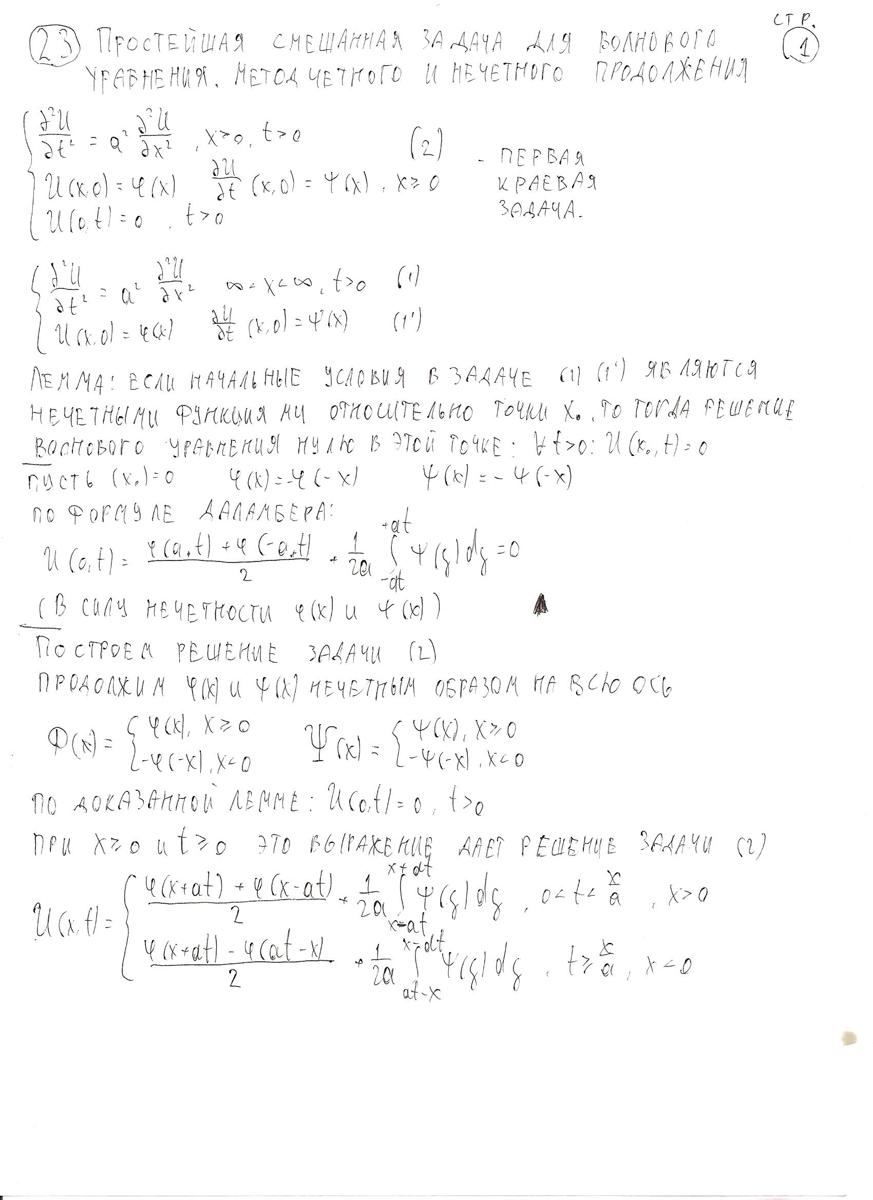 СТР.
1
23 ПРОСТЕЙШАЯ СМЕШАННАЯ ЗАДАЧА ДЛЯ ВОЛНОВОГО
УРАВНЕНИЯ. МЕТОД ЧЕТНОГО И НЕЧЕТНОГО ПРОДОЛЖЕНИЯ
{ ∂²U/∂t² = a² ∂²U/∂x², x>0, t>0 (2) - ПЕРВАЯ
U(x,0) = φ(x) ∂U/∂t (x,0) = ψ(x), x≥0 КРАЕВАЯ
U(0,t) = 0, t>0 ЗАДАЧА.
{ ∂²U/∂t² = a² ∂²U/∂x² ∞<x<∞, t>0 (1)
U(x,0) = φ(x) ∂U/∂t (x,0) = ψ(x) (1')
ЛЕММА: ЕСЛИ НАЧАЛЬНЫЕ УСЛОВИЯ В ЗАДАЧЕ (1) (1') ЯВЛЯЮТСЯ
НЕЧЕТНЫМИ ФУНКЦИЯМИ ОТНОСИТЕЛЬНО ТОЧКИ X₀, ТО ТОГДА РЕШЕНИЕ
ВОЛНОВОГО УРАВНЕНИЯ НУЛЮ В ЭТОЙ ТОЧКЕ: ∀ t>0: U(x₀,t)=0
ПУСТЬ (x₀)=0 φ(x)=-φ(-x) ψ(x)=-ψ(-x)
ПО ФОРМУЛЕ ДАЛАМБЕРА:
U(0,t) = (φ(a,t) + φ(-a,t))/2 + 1/2a ∫_{-at}^{+at} ψ(ξ)dξ = 0
(В СИЛУ НЕЧЕТНОСТИ φ(x) И ψ(x))
ПОСТРОЕМ РЕШЕНИЕ ЗАДАЧИ (2)
ПРОДОЛЖИМ φ(x) И ψ(x) НЕЧЕТНЫМ ОБРАЗОМ НА ВСЮ ОСЬ
Φ(x) = { φ(x), x≥0; -φ(-x), x<0 Ψ(x) = { ψ(x), x≥0; -ψ(-x), x<0
ПО ДОКАЗАННОЙ ЛЕММЕ: U(0,t)=0, t>0
ПРИ X≥0 И t≥0 ЭТО ВЫРАЖЕНИЕ ДАЕТ РЕШЕНИЕ ЗАДАЧИ (2)
U(x,t) = { (φ(x+at) + φ(x-at))/2 + 1/2a ∫_{x-at}^{x+at} ψ(ξ)dξ, 0<t<x/a, x>0
(φ(x+at) - φ(at-x))/2 + 1/2a ∫_{at-x}^{x+at} ψ(ξ)dξ, t≥x/a, x<0